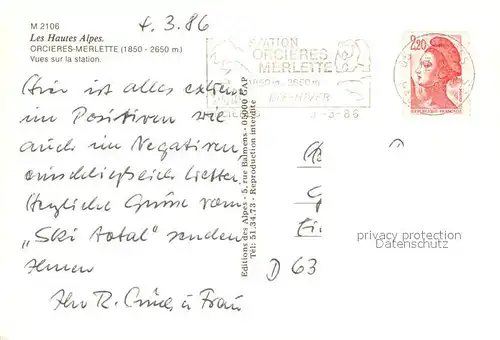 M 2106
4.3.86
Les Hautes Alpes.
ORCIERES-MERLETTE (1850 - 2650 m)
Vues sur la station.
STATION
ORCIERES
MERLETTE
1850 m - 2650 m
ETE-HIVER
-3-86
2,20
Hier ist alles extrem
im Positiven wie
auch im Negativen
einschließlich Wetter.
Herzliche Grüße vom
„Ski total" senden
Ihnen
Ihr R. u Frau
Editions des Alpes - 5, rue Balmens - 05000 GAP
Tél: 51.34.73 - Reproduction interdite
D 63
privacy protection
Datenschutz